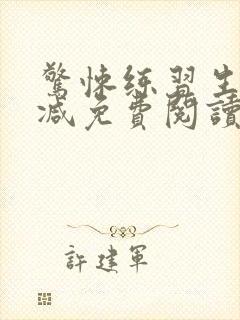 驚悚練習生
減免費閱讀
許建軍